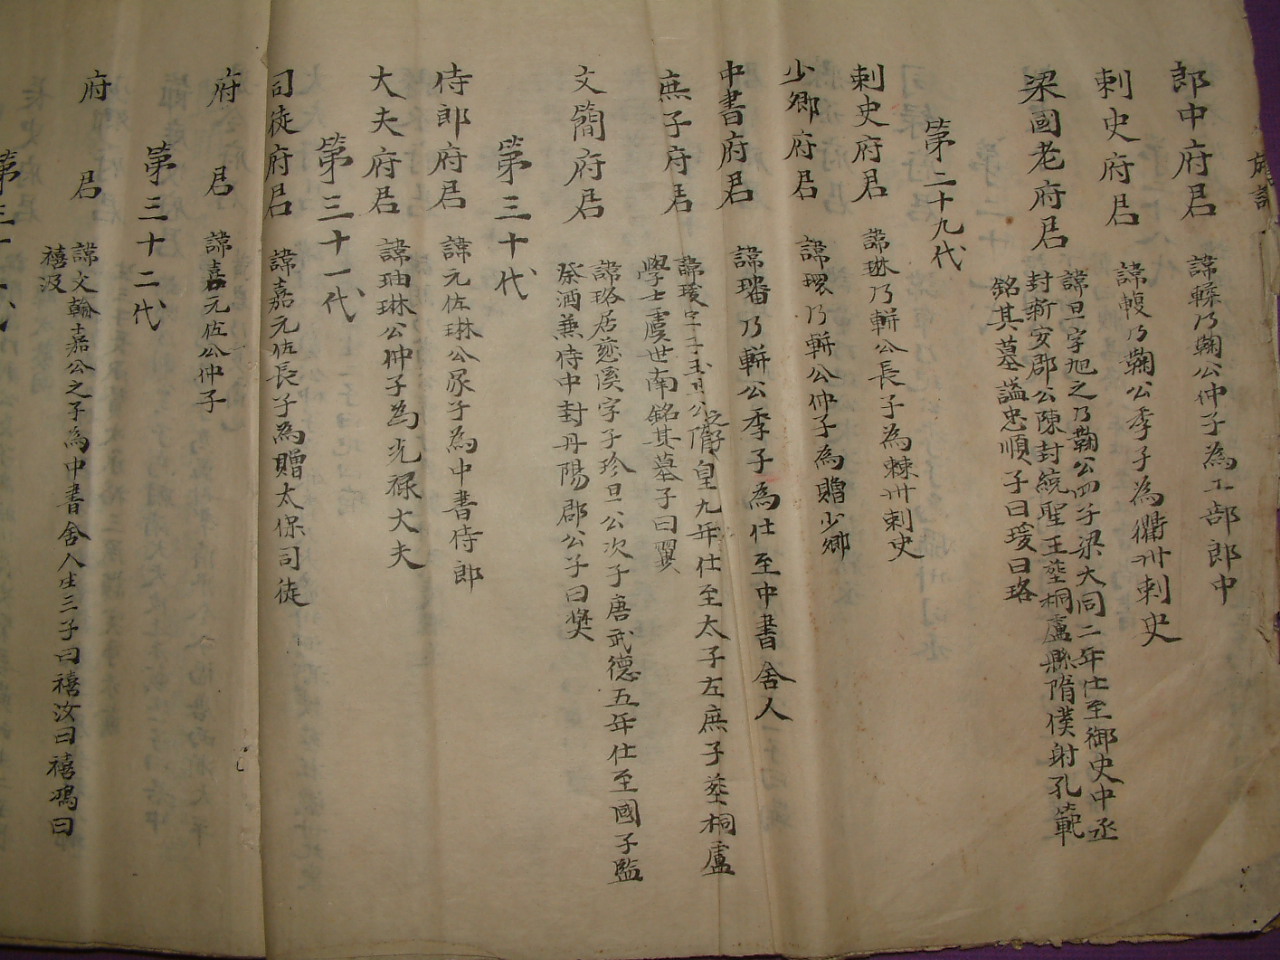 郎中府君 諱轃乃鞠公仲子為工部郎中
刺史府君 諱幔乃鞠公季子為衢州刺史
梁國老府君 諱旦字旭之乃鞠公四子梁大同二年仕至御史中丞
封新安郡公陳封統聖王塟桐廬縣隋僕射孔範
銘其墓謚忠順子曰瑗曰珞
第二十九代
刺史府君 諱琳乃軿公長子為棘州刺史
少卿府君 諱環乃軿公仲子為贈少卿
中書府君 諱璠乃軿公季子為仕至中書舍人
庶子府君 諱瑗字子玉旦公之子隋皇九年仕至太子左庶子塟桐廬
學士虞世南銘其墓子曰翼
文簡府君 諱珞居慈溪字子珍旦公次子唐武德五年仕至國子監
祭酒兼侍中封丹陽郡公子曰奬
第三十代
侍郎府君 諱元佐琳公冢子為中書侍郎
大夫府君 諱琳公仲子為光禄大夫
第三十一代
司徒府君 諱嘉元佐長子為贈太保司徒
府君 諱嘉元佐公仲子
第三十二代
府君 諱文翰嘉公之子為中書舍人生三子曰禧汝曰禧鴻曰
禧汲
第三十